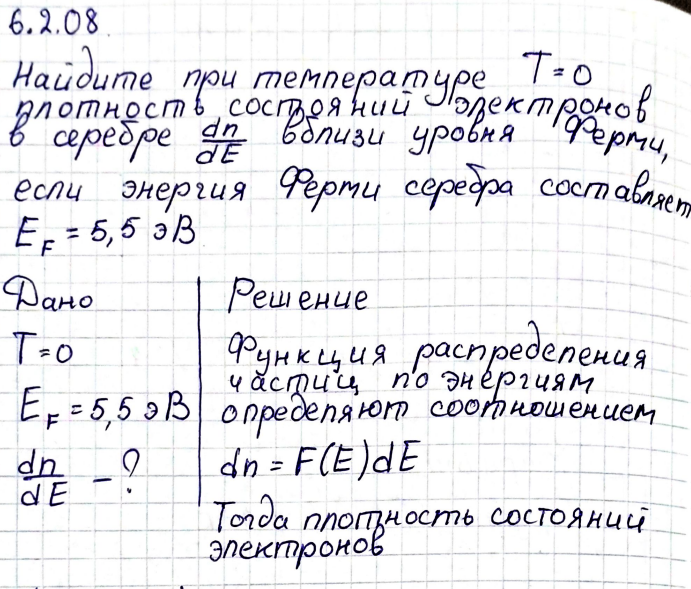 6.2.08
Найдите при температуре T=0
плотность состояний электронов
в серебре dn/dE вблизи уровня Ферми,
если энергия Ферми серебра составляет
E_F = 5,5 эВ
Дано
T=0
E_F = 5,5 эВ
dn/dE - ?
Решение
Функция распределения
частиц по энергиям
определяют соотношением
dn = F(E)dE
Тогда плотность состояний
электронов